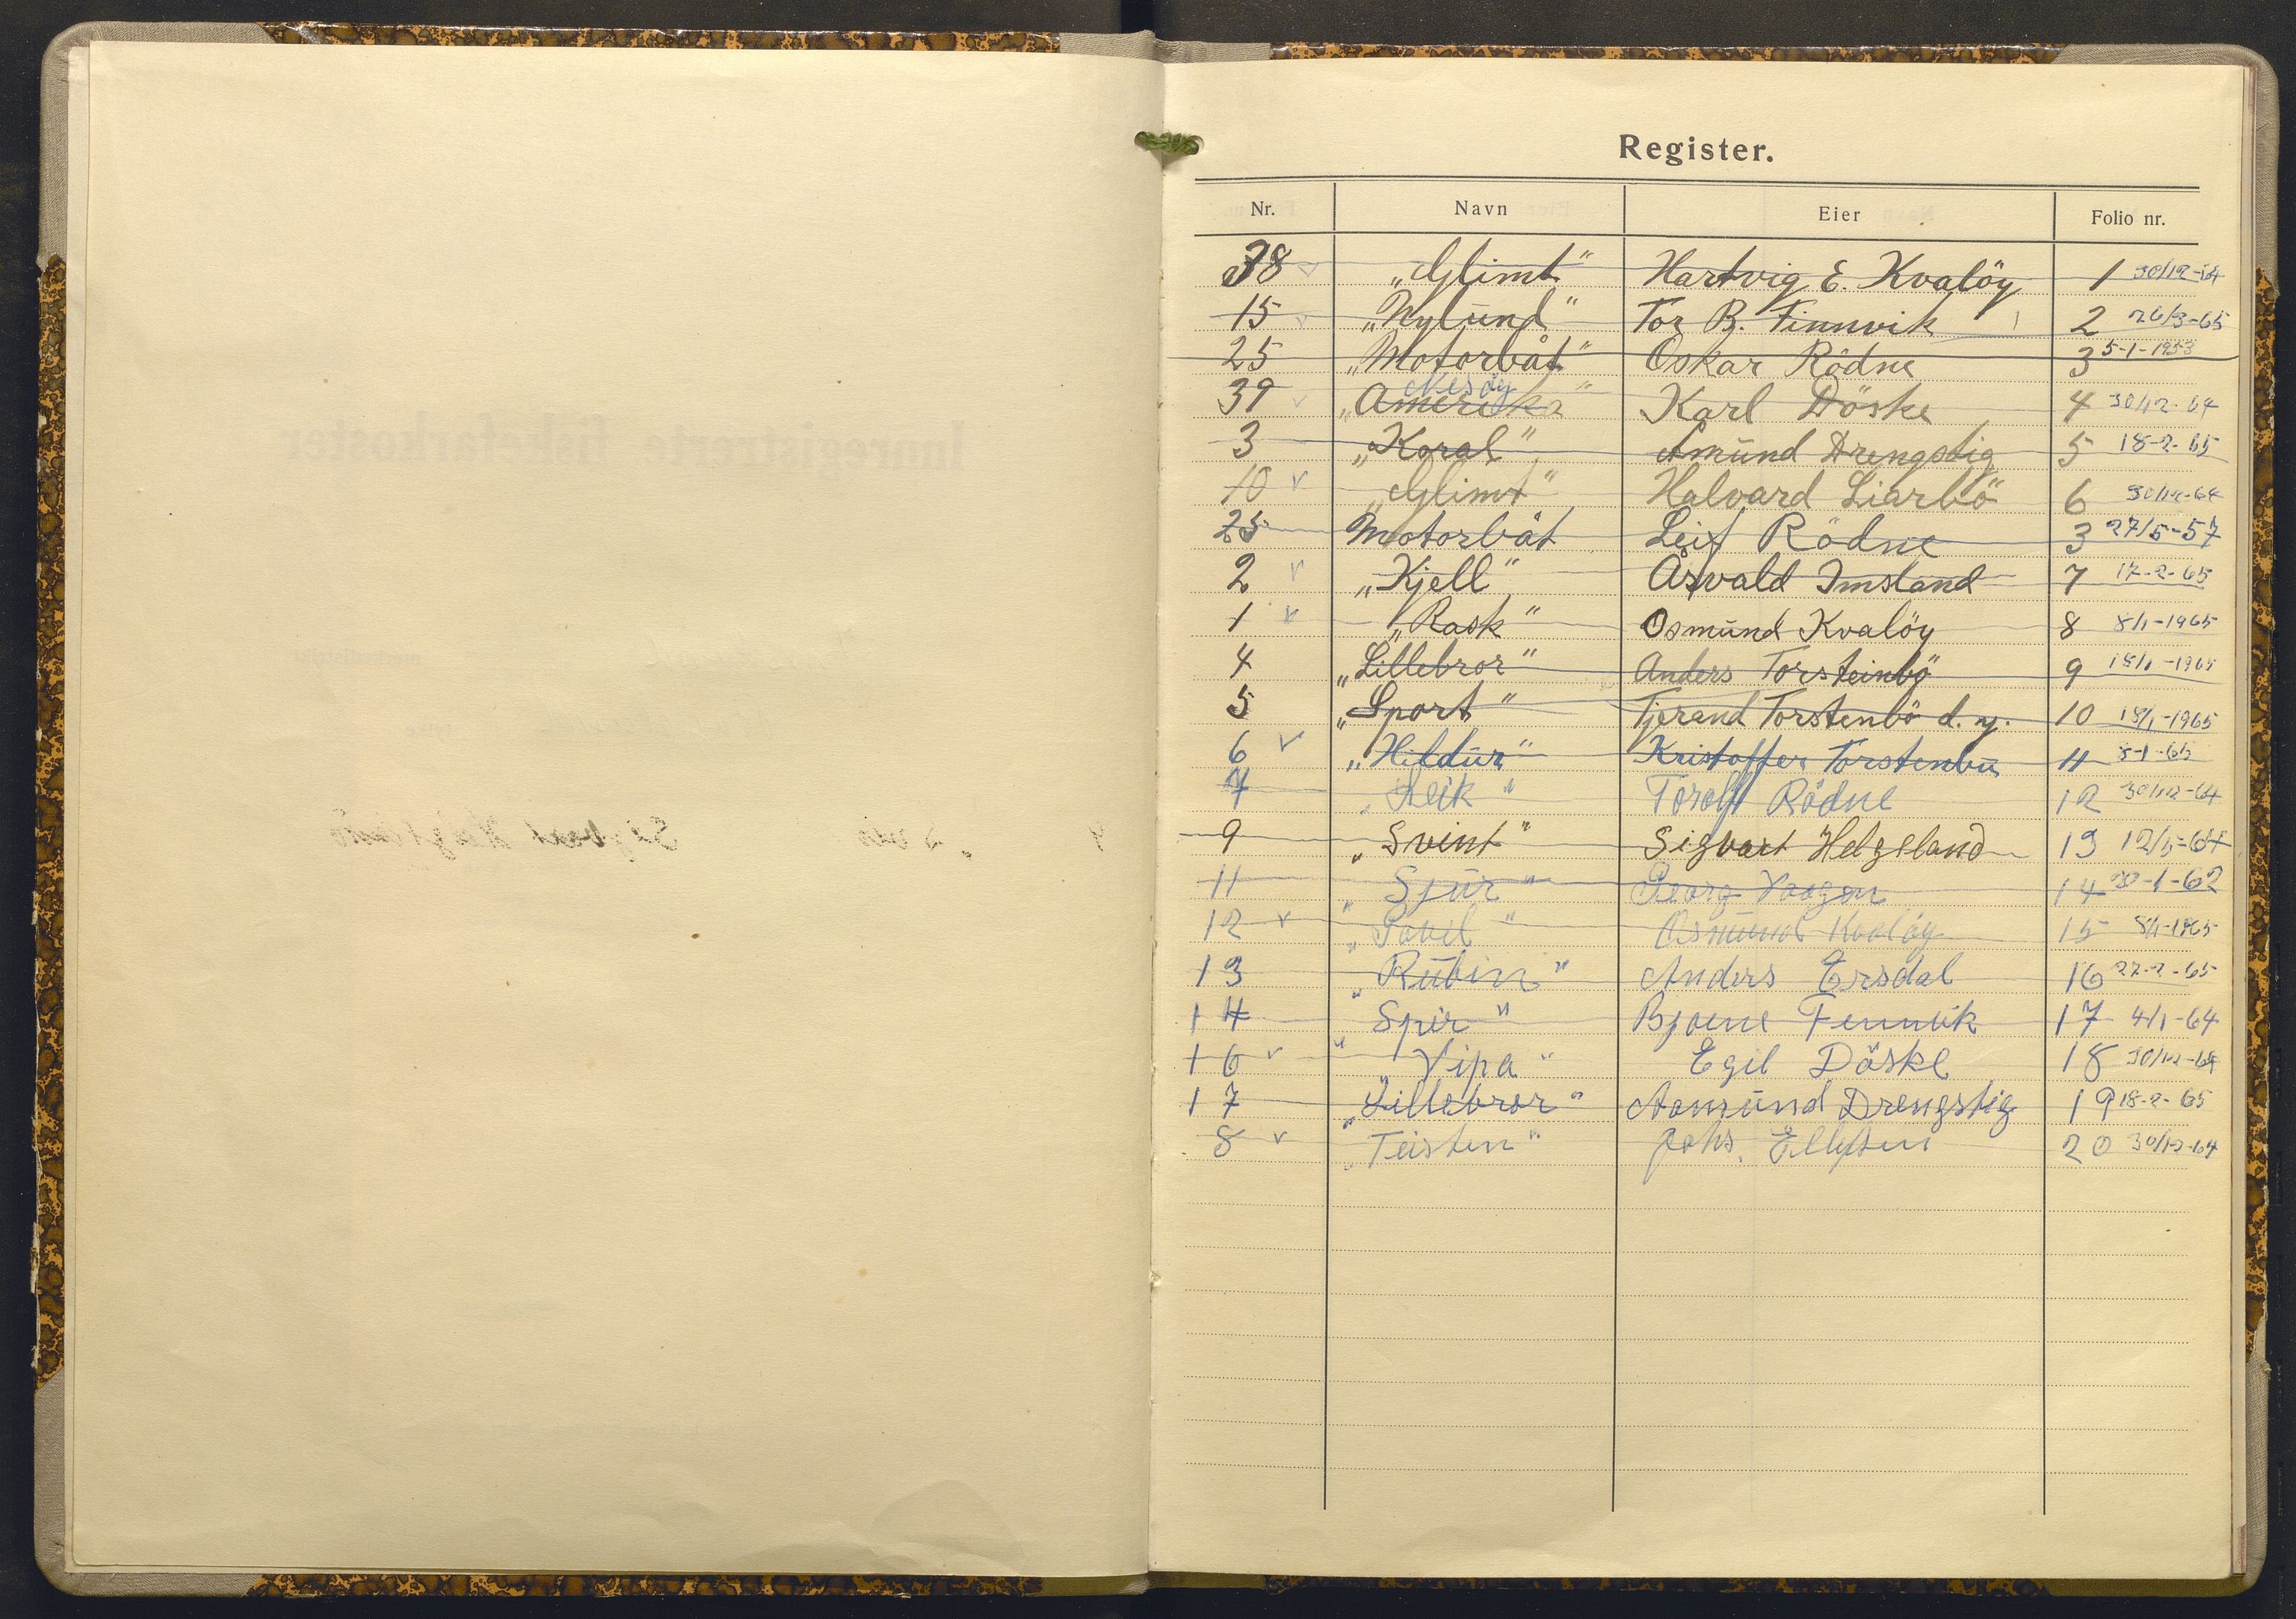 Register.
Nr. Navn Eier Folio nr.
38 „Glimt" Hartvig E. Kvalöy 1 30/12-64
15 „Nylund" Tor B. Finnvik 2 26/3-65
25 „Motorbåt" Oskar Rödne 3 5-1-1953
Nesöy
39 „Amerika" Karl Döske 4 30/12-64
3 „Koral" Amund Drengstig 5 18-2-65
10 „Glimt" Halvard Liarbö 6 30/12-64
25 Motorbåt Leif Rödne 3 27/5-57
2 „Kjell" Asvald Imsland 7 17-2-65
1 „Rask" Osmund Kvalöy 8 8/1-1965
4 „Lillebror" Anders Torsteinbö 9 18/1-1965
5 „Sport" Tjerand Torstenbö d. y. 10 18/1-1965
6 „Hildur" Kristoffer Torstenbu 11 8-1-65
7 „Reik" Torolf Rödne 12 30/12-64
9 „Svint" Sigvart Helgeland 13 12/5-64
11 „Spur" Georg 14 30-1-62
12 „Pavel" Osmund Kvalöy 15 8/1-1965
13 „Rubin" Anders Ersdal 16 22-2-65
14 „Spir" Bjarne Finnvik 17 4/1-64
16 „Vipa" Egil Döske 18 30/12-64
17 „Lillebror" Aamund Drengstig 19 18-2-65
8 „Teisten" Johs. Ellefsen 20 30/12-64